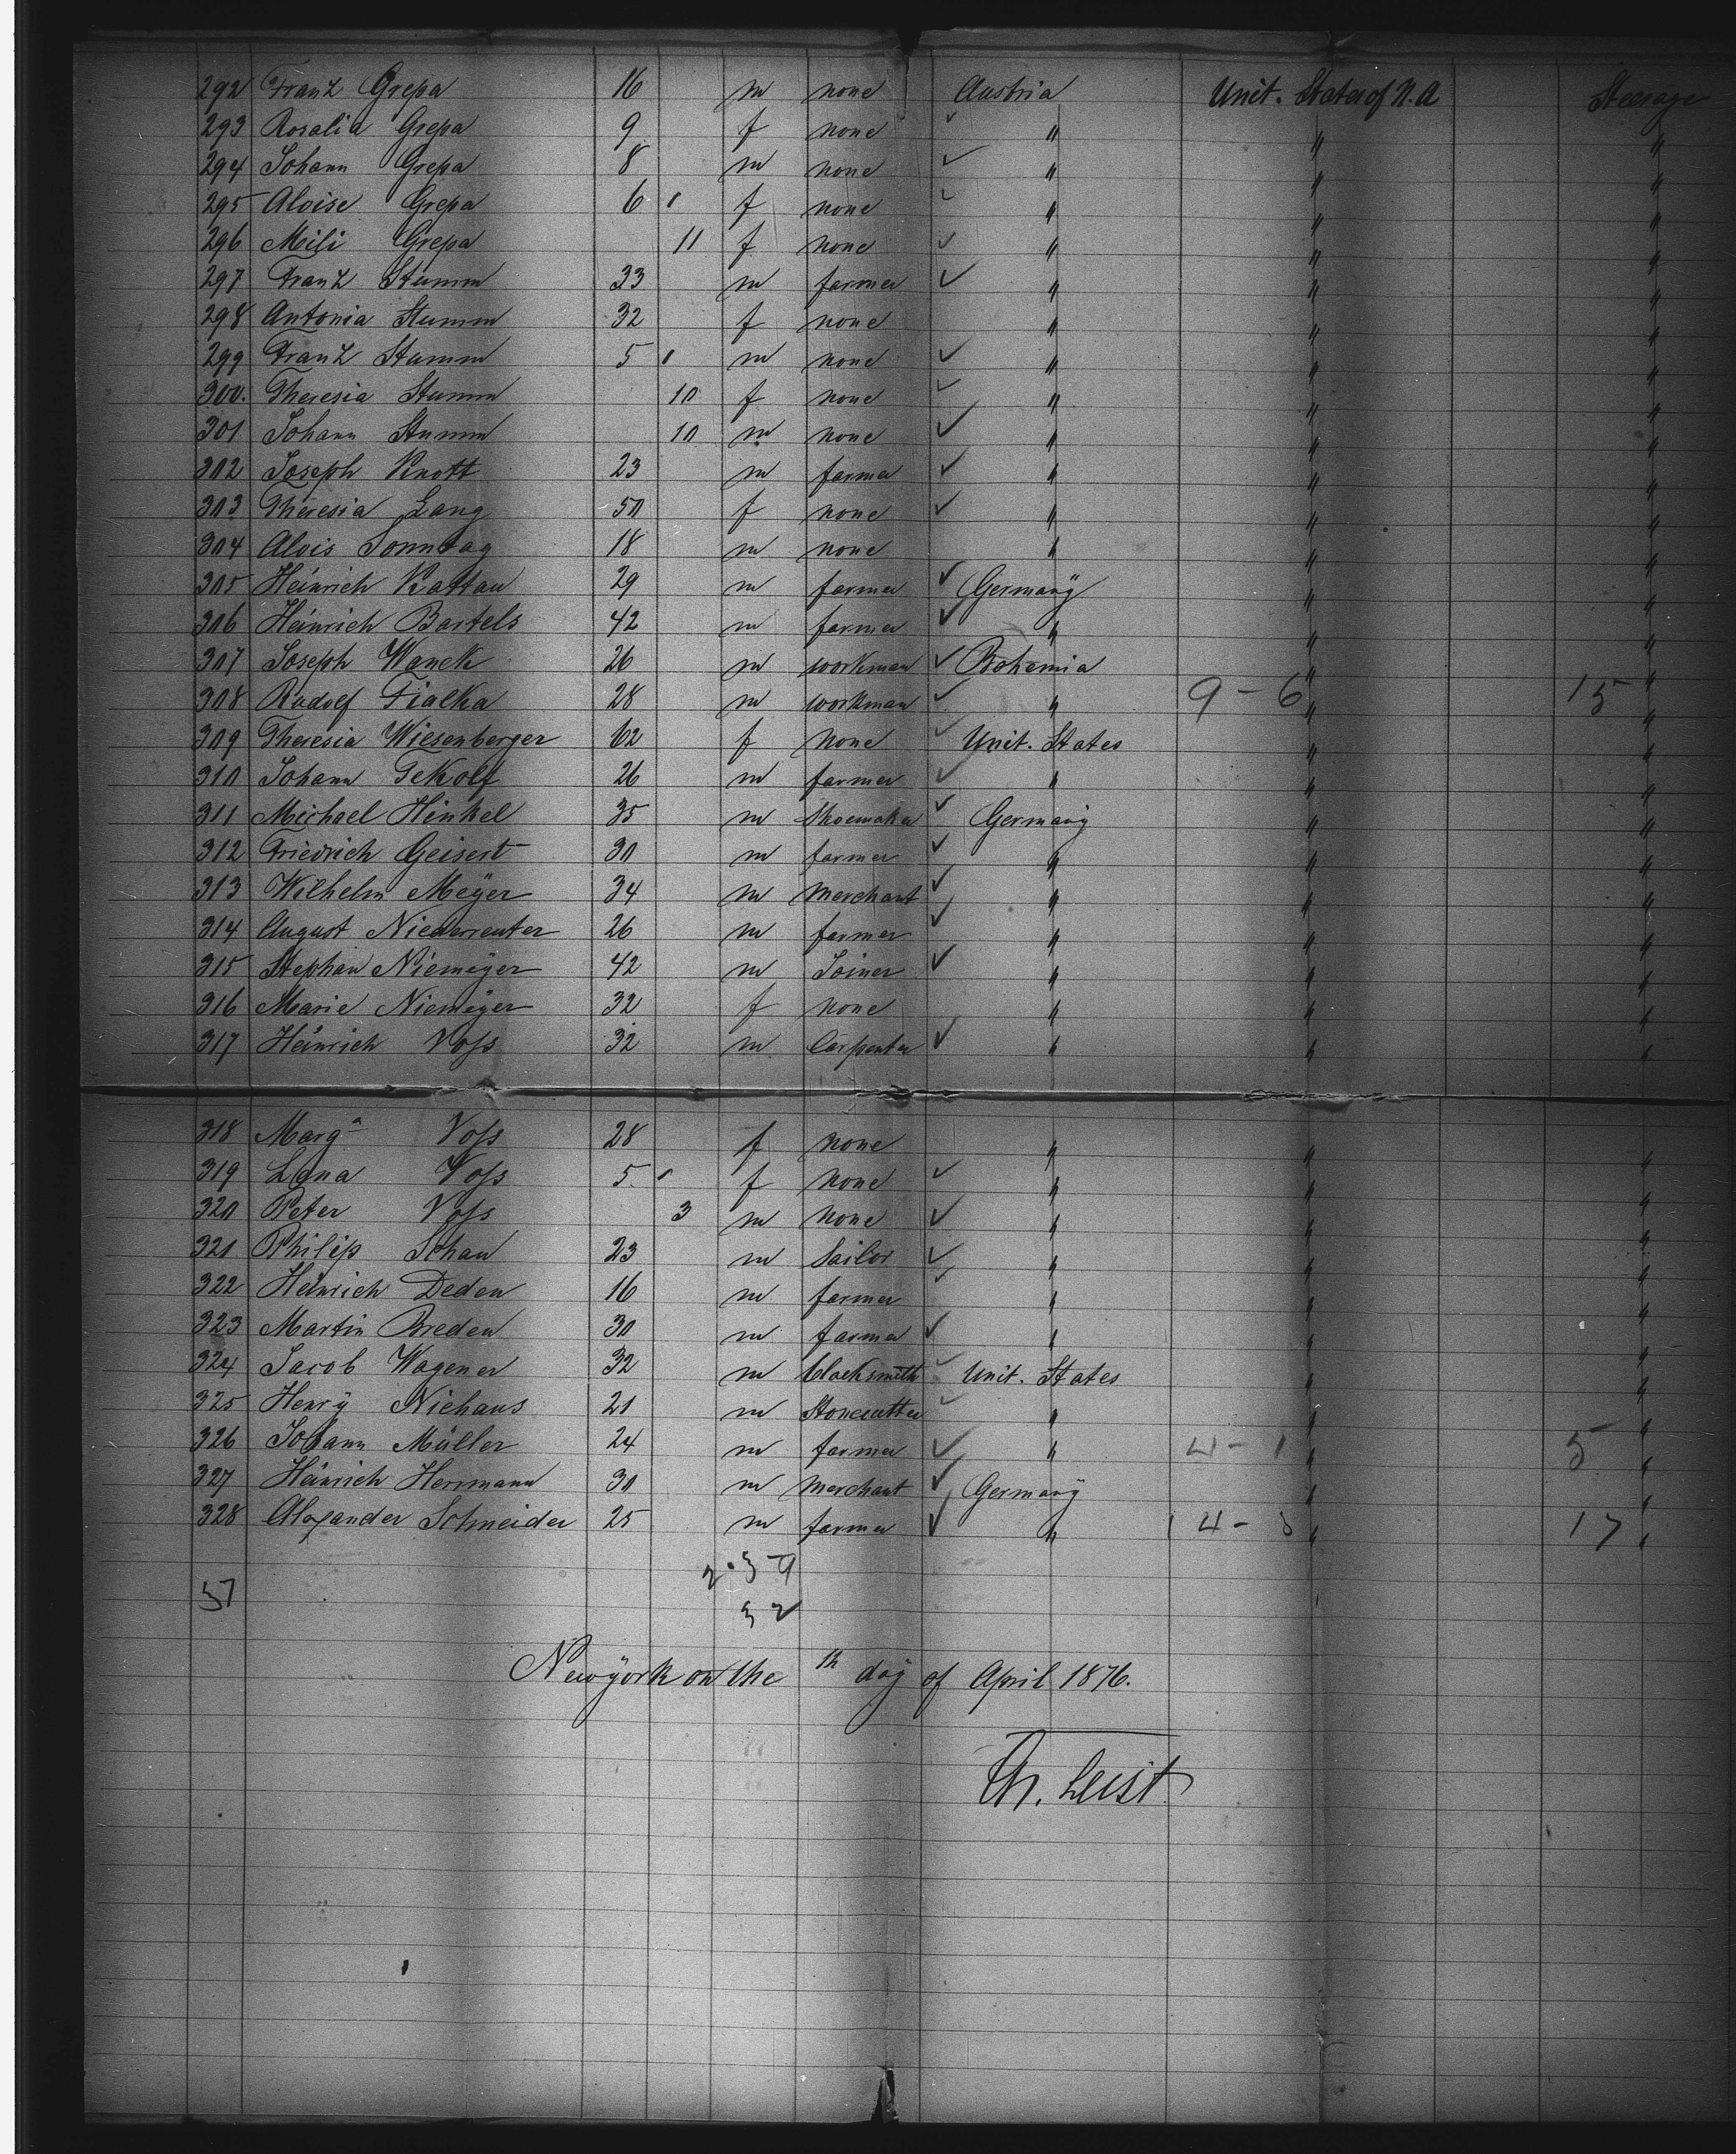 292 Franz Grepa 16 m none Austria Unit. States of N.A Steerage
293 Rosalia Grepa 9 f none " " "
294 Johann Grepa 8 m none " " "
295 Aloise Grepa 6 f none " " "
296 Mili Grepa 11 f none " " "
297 Franz Stumm 33 m farmer " " "
298 Antonia Stumm 32 f none " " "
299 Franz Stumm 5 m none " " "
300. Theresia Stumm 10 f none " " "
301 Johann Stumm 10 m none " " "
302 Joseph Knott 23 m farmer " " "
303 Theresia Lang 50 f none " " "
304 Alois Sonntag 18 m none " " "
305 Heinrich Kattau 29 m farmer Germany " "
306 Heinrich Bartels 42 m farmer " " "
307 Joseph Wanek 26 m workman Bohemia " "
308 Rudolf Fialka 28 m workman " 9-6 " 15 "
309 Theresia Wiesenberger 62 f none Unit. States " "
310 Johann Tekolf 26 m farmer " " "
311 Michael Hinkel 35 m Shoemaker Germany " "
312 Friedrich Geisert 30 m farmer " " "
313 Wilhelm Meÿer 34 m Merchant " " "
314 August Niederreuter 26 m farmer " " "
315 Stephan Niemeÿer 42 m Joiner " " "
316 Marie Niemeÿer 32 f none " " "
317 Heinrich Voss 32 m Carpenter " " "
318 Marg.a Voss 28 f none " " "
319 Lena Voss 5 f none " " "
320 Peter Voss 3 m none " " "
321 Philip Schau 23 m Sailor " " "
322 Heinrich Deden 16 m farmer " " "
323 Martin Breden 30 m farmer " " "
324 Jacob Wagener 32 m blacksmith Unit. States " "
325 Henrÿ Niehaus 21 m Stonecutter " " "
326 Johann Müller 24 m farmer " 4-1 " 5 "
327 Heinrich Herrmann 30 m Merchant Germanÿ " "
328 Alexander Schneider 25 m farmer " " 17 "
37
32
Newÿork on the th day of April 1876.
Th. Leist